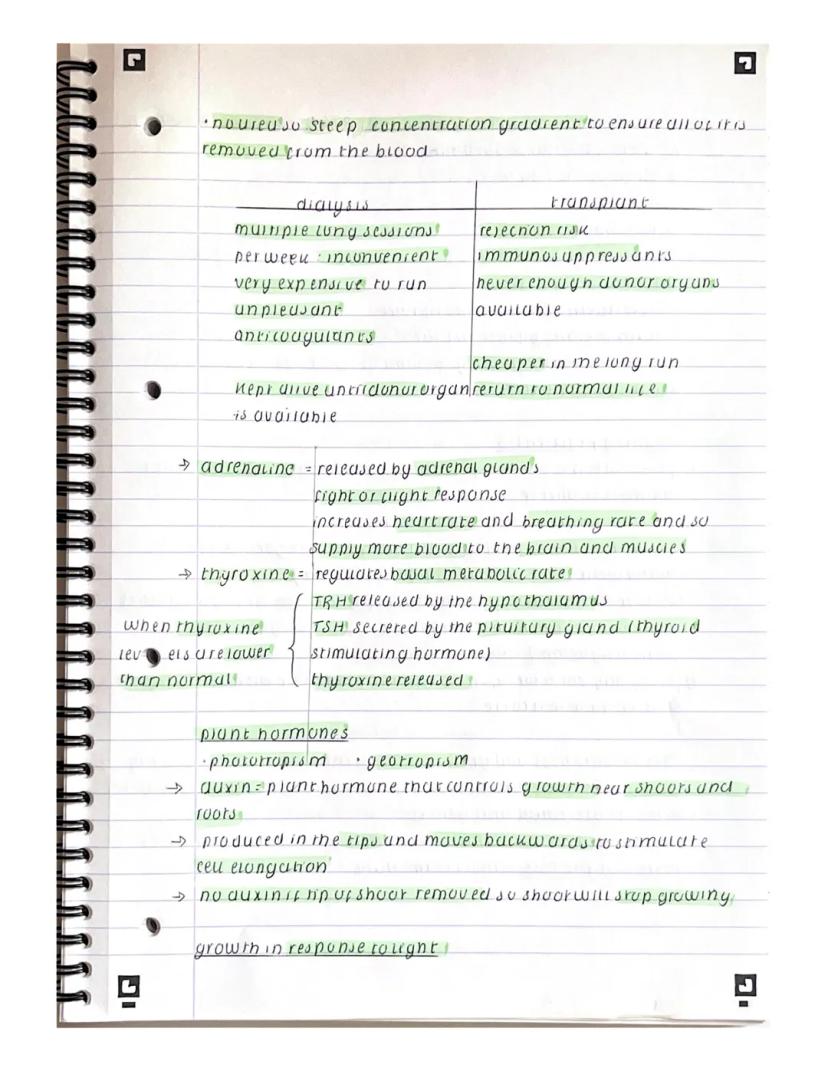 · no urea so steep concentration gradient to ensure all of it is
removed from the blood
dialysis
transplant
multiple long sessions
per week · inconvenient
very expensive to run
unpleasant
anticoagulants
kept alive until donor organ
is available
rejection risk
immunosuppressants
never enough donor organs
available
cheaper in the long run
return to normal life
→ adrenaline = released by adrenal glands
fight or flight response
increases heart rate and breathing rate and so
supply more blood to the brain and muscles
→ thyroxine = regulates basal metabolic rate
when thyroxine
levels are lower
than normal
TRH released by the hypothalamus
TSH secreted by the pituitary gland (thyroid
stimulating hormone)
thyroxine released
plant hormones
· phototropism · geotropism
→ auxin = plant hormone that controls growth near shoots and
roots
→ produced in the tips and moves backwards to stimulate
cell elongation
→ no auxin if tip of shoot removed so shoot will stop growing
growth in response to light